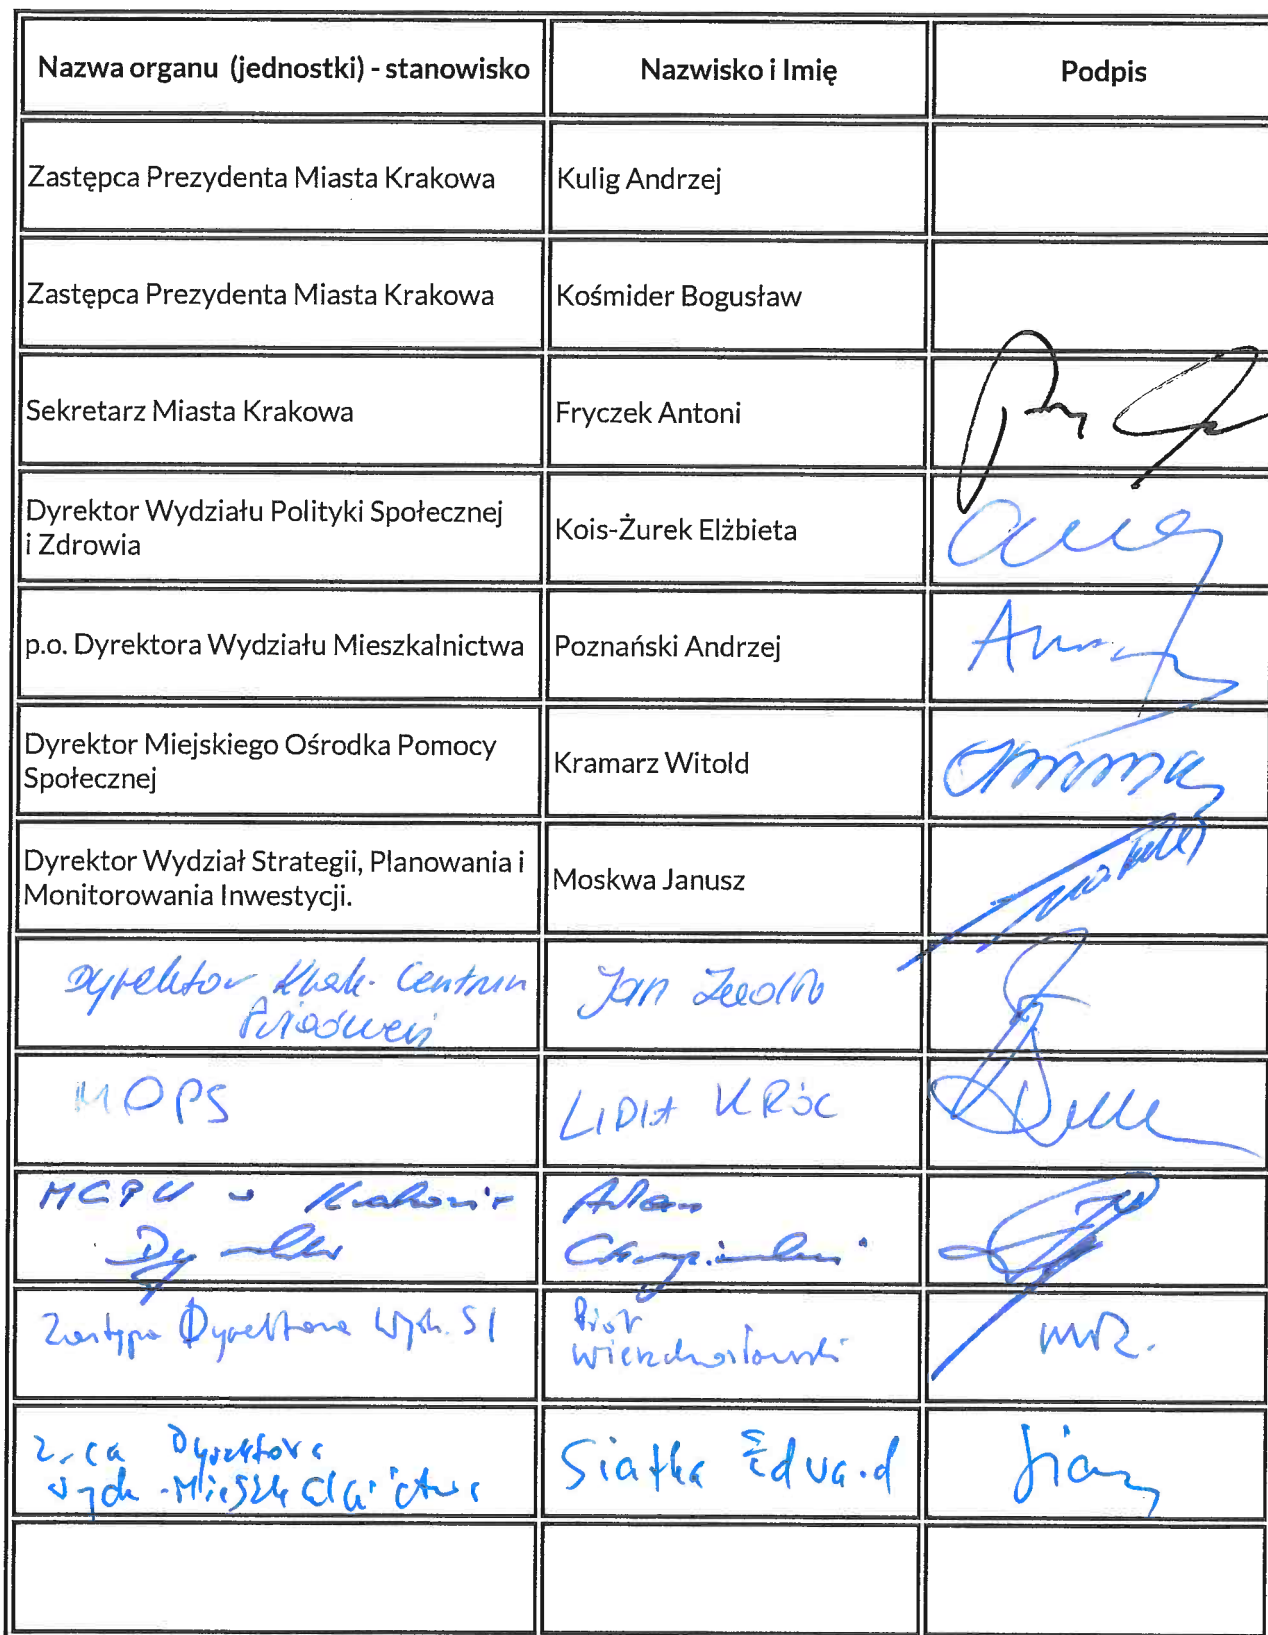 Nazwa organu (jednostki) - stanowisko Nazwisko i Imię Podpis
Zastępca Prezydenta Miasta Krakowa Kulig Andrzej
Zastępca Prezydenta Miasta Krakowa Kośmider Bogusław
Sekretarz Miasta Krakowa Fryczek Antoni
Dyrektor Wydziału Polityki Społecznej
i Zdrowia Kois-Żurek Elżbieta
p.o. Dyrektora Wydziału Mieszkalnictwa Poznański Andrzej
Dyrektor Miejskiego Ośrodka Pomocy
Społecznej Kramarz Witold
Dyrektor Wydział Strategii, Planowania i
Monitorowania Inwestycji. Moskwa Janusz
Dyrektor Krak. Centrum Jan
MOPS LIDIA KRÓL
MCPU w Krakowie Adam
Dyrektor
Zastępca Dyrektora Wydz. SI Piotr
Z-ca Dyrektora Siatka Edward
Wydz. Mieszkalnictwa